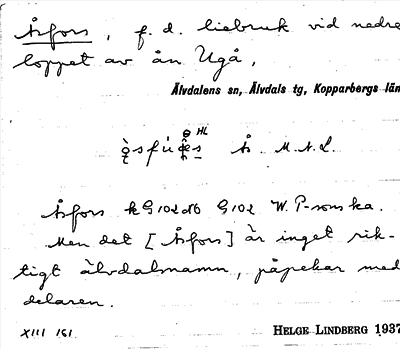 Åsfors, f. d. liebruk vid nedre
loppet av ån Ugå,
Älvdalens sn, Älvdals tg, Kopparbergs län
HL
Ås. M.A.L.
Åsfors kG102db G102 W. P-son ka.
Men det [Åsfors] är inget rik-
tigt älvdalsnamn, påpekar med
delaren.
XIII 151. HELGE LINDBERG 1937